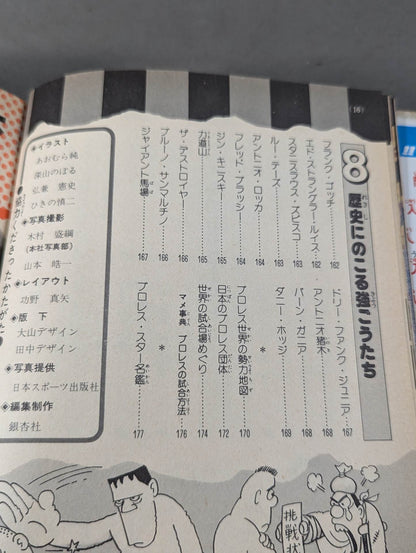 (16)
8 歴史にのこる強ごうたち
れきし
きょう
フランク・ゴッチ……162
エド・ストラングラー・ルイス…162
スタニスラウス・ズビスコ……163
ルー・テーズ……163
アントニオ・ロッカ……164
フレッド・ブラッシー……164
ジン・キニスキー……165
力道山……165
ザ・デストロイヤー……166
ブルーノ・サンマルチノ……166
ジャイアント馬場……167
ドリー・ファンク・ジュニア…167
アントニオ猪木……168
バーン・ガニア……168
ダニー・ホッジ……169
*
プロレス世界の勢力地図……170
日本のプロレス団体……172
世界の試合場めぐり……174
マメ事典 プロレスの試合方法……176
*
プロレス・スター名鑑……177
●協力くださったかたがた●
◆イラスト
あおむら純
柴山のぼる
弘兼憲史
ひきの慎二
◆写真撮影
木村盛綱
(本社写真部)
山本皓一
◆レイアウト
功野真矢
◆版下
大山デザイン
田中デザイン
◆写真提供
日本スポーツ出版社
◆編集制作
銀杏社
挑戦状